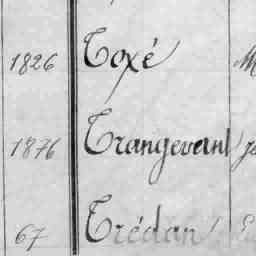 1826 Toxé
1876 Trangevant
67 Trédan